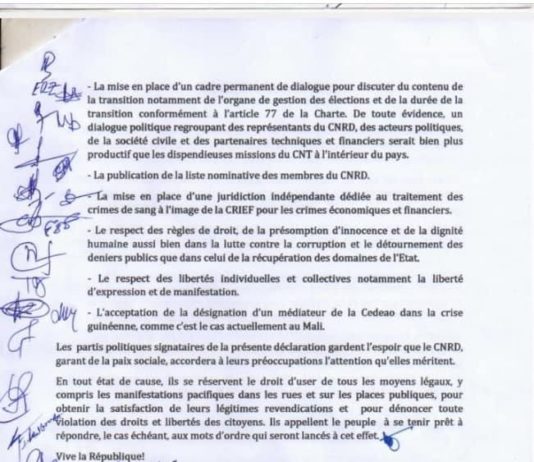 - La mise en place d'un cadre permanent de dialogue pour discuter du contenu de
la transition notamment de l'organe de gestion des élections et de la durée de la
transition conformément à l'article 77 de la Charte. De toute évidence, un
dialogue politique regroupant des représentants du CNRD, des acteurs politiques,
de la société civile et des partenaires techniques et financiers serait bien plus
productif que les dispendieuses missions du CNT à l'intérieur du pays.
- La publication de la liste nominative des membres du CNRD.
- La mise en place d'une juridiction indépendante dédiée au traitement des
crimes de sang à l'image de la CRIEF pour les crimes économiques et financiers.
- Le respect des règles de droit, de la présomption d'innocence et de la dignité
humaine aussi bien dans la lutte contre la corruption et le détournement des
deniers publics que dans celui de la récupération des domaines de l'Etat.
- Le respect des libertés individuelles et collectives notamment la liberté
d'expression et de manifestation.
- L'acceptation de la désignation d'un médiateur de la Cedeao dans la crise
guinéenne, comme c'est le cas actuellement au Mali.
Les partis politiques signataires de la présente déclaration gardent l'espoir que le CNRD,
garant de la paix sociale, accordera à leurs préoccupations l'attention qu'elles méritent.
En tout état de cause, ils se réservent le droit d'user de tous les moyens légaux, y
compris les manifestations pacifiques dans les rues et sur les places publiques, pour
obtenir la satisfaction de leurs légitimes revendications et pour dénoncer toute
violation des droits et libertés des citoyens. Ils appellent le peuple à se tenir prêt à
répondre, le cas échéant, aux mots d'ordre qui seront lancés à cet effet.
Vive la République!